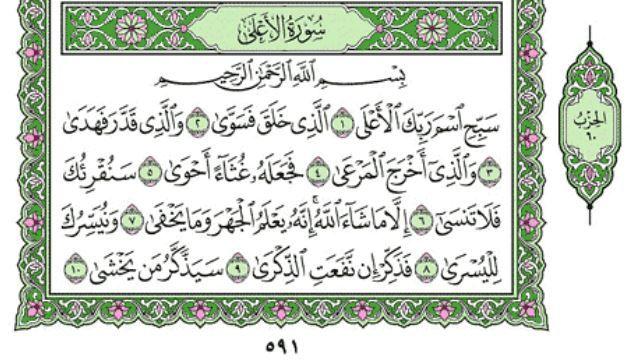 سُورَةُ الأَعْلَى
بِسْمِ اللَّهِ الرَّحْمَٰنِ الرَّحِيمِ
سَبِّحِ اسْمَ رَبِّكَ الْأَعْلَى ١ الَّذِي خَلَقَ فَسَوَّىٰ ٢ وَالَّذِي قَدَّرَ فَهَدَىٰ
٣ وَالَّذِي أَخْرَجَ الْمَرْعَىٰ ٤ فَجَعَلَهُ غُثَاءً أَحْوَىٰ ٥ سَنُقْرِئُكَ
فَلَا تَنسَىٰ ٦ إِلَّا مَا شَاءَ اللَّهُ ۚ إِنَّهُ يَعْلَمُ الْجَهْرَ وَمَا يَخْفَىٰ ٧ وَنُيَسِّرُكَ
لِلْيُسْرَىٰ ٨ فَذَكِّرْ إِن نَّفَعَتِ الذِّكْرَىٰ ٩ سَيَذَّكَّرُ مَن يَخْشَىٰ ١٠
الحِزْبُ
٦٠
٥٩١